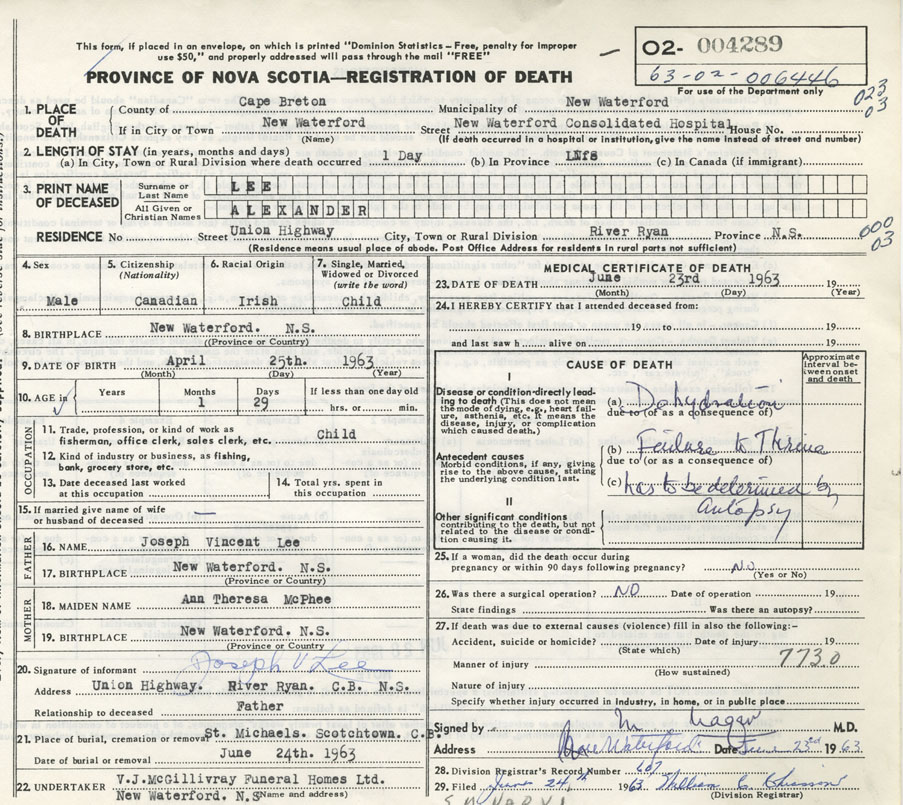 This form, if placed in an envelope, on which is printed "Dominion Statistics – Free, penalty for improper
use $50," and properly addressed will pass through the mail "FREE"
O2- 004289
63-02-006446
For use of the Department only
PROVINCE OF NOVA SCOTIA—REGISTRATION OF DEATH
023
03
1. PLACE OF DEATH
County of Cape Breton Municipality of New Waterford
If in City or Town New Waterford Street New Waterford Consolidated Hospital House No.
(Name) (If death occurred in a hospital or institution, give the name instead of street and number)
2. LENGTH OF STAY (in years, months and days)
(a) In City, Town or Rural Division where death occurred 1 Day (b) In Province (c) In Canada (if immigrant)
3. PRINT NAME OF DECEASED
Surname or Last Name LEE
All Given or Christian Names ALEXANDER
RESIDENCE No Street Union Highway City, Town or Rural Division River Ryan Province N.S.
(Residence means usual place of abode. Post Office Address for residents in rural parts not sufficient)
000
03
4. Sex Male
5. Citizenship (Nationality) Canadian
6. Racial Origin Irish
7. Single, Married, Widowed or Divorced (write the word) Child
8. BIRTHPLACE New Waterford. N.S.
(Province or Country)
9. DATE OF BIRTH April 25th. 1963
(Month) (Day) (Year)
10. AGE in Years Months 1 Days 29 If less than one day old hrs. or min.
OCCUPATION
11. Trade, profession, or kind of work as fisherman, office clerk, sales clerk, etc. Child
12. Kind of industry or business, as fishing, bank, grocery store, etc.
13. Date deceased last worked at this occupation
14. Total yrs. spent in this occupation
15. If married give name of wife or husband of deceased —
FATHER
16. NAME Joseph Vincent Lee
17. BIRTHPLACE New Waterford. N.S.
(Province or Country)
MOTHER
18. MAIDEN NAME Ann Theresa McPhee
19. BIRTHPLACE New Waterford. N.S.
(Province or Country
20. Signature of informant Joseph V Lee
Address Union Highway. River Ryan. C.B. N.S.
Relationship to deceased Father
21. Place of burial, cremation or removal St. Michaels. Scotchtown. C.B.
Date of burial or removal June 24th. 1963
22. UNDERTAKER V.J.McGillivray Funeral Homes Ltd.
New Waterford. N.S (Name and address)
MEDICAL CERTIFICATE OF DEATH
23. DATE OF DEATH June 23rd 1963 19
(Month) (Day) (Year)
24. I HEREBY CERTIFY that I attended deceased from:
19 to 19
and last saw h alive on 19
CAUSE OF DEATH
Approximate interval between onset and death
I
Disease or condition directly leading to death (This does not mean the mode of dying, e.g., heart failure, asthenia, etc. It means the disease, injury, or complication which caused death.)
(a) Dehydration
due to (or as a consequence of)
Antecedent causes
Morbid conditions, if any, giving rise to the above cause, stating the underlying condition last.
(b) Failure to Thrive
due to (or as a consequence of)
(c) has to be determined by
Autopsy
II
Other significant conditions
contributing to the death, but not related to the disease or condition causing it.
25. If a woman, did the death occur during
pregnancy or within 90 days following pregnancy? NO
(Yes or No)
26. Was there a surgical operation? NO Date of operation 19
State findings Was there an autopsy?
27. If death was due to external causes (violence) fill in also the following:-
Accident, suicide or homicide? Date of injury 19
(State which)
7730
Manner of injury
(How sustained)
Nature of injury
Specify whether injury occurred in industry, in home, or in public place
Signed by M.D.
Address New Waterford Date June 23rd 1963
28. Division Registrar's Record Number 607
29. Filed June 24th 1963 William
(Division Registrar)